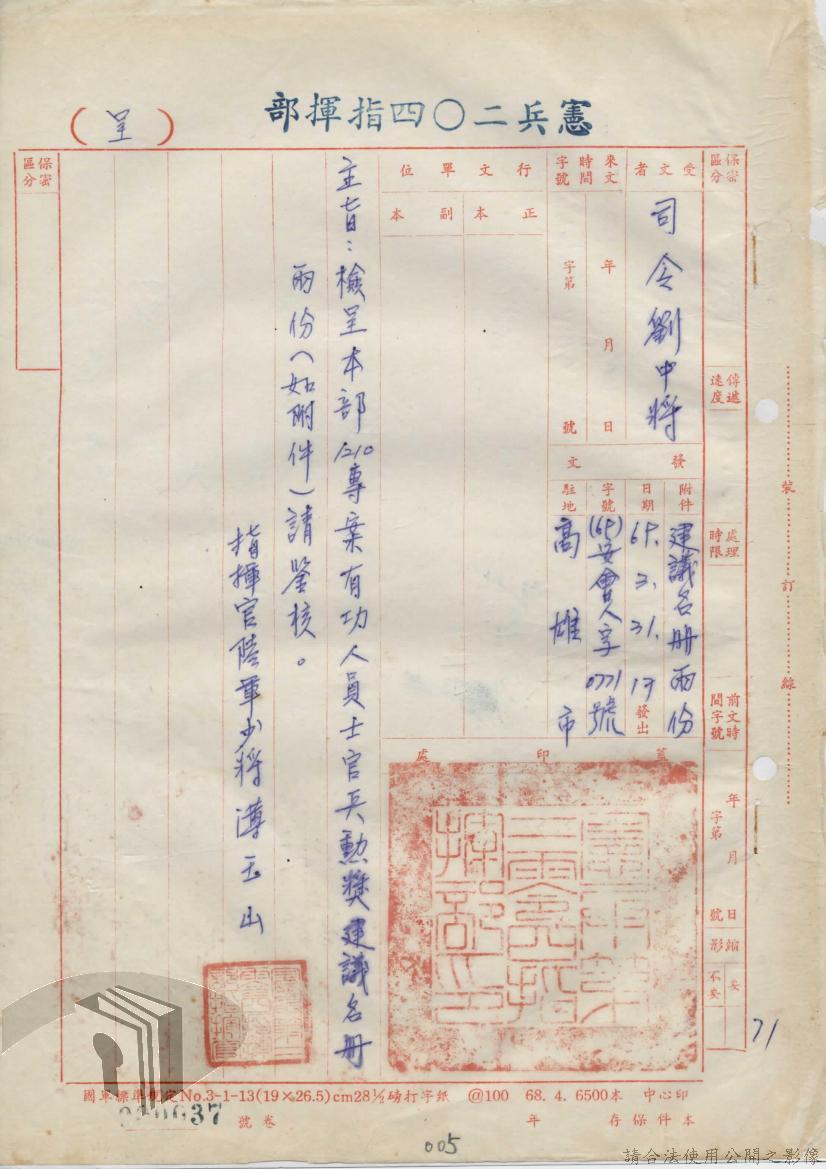 憲兵二〇四指揮部
(呈)
保密區分
受文者
司令劉中將
來文
時間
年 月 日
字號
字第 號
行文單位
正本
副本
發文
附件
建議名冊兩份
日期
3. 31.
發出
字號
0771號
駐地
高雄市
蓋印處
主旨：檢呈本部1210專案有功人員士官兵勳獎建議名冊
兩份（如附件）請鑒核。
指揮官陸軍少將
玉山
保密區分
傳遞速度
處理時限
前文時間字號
年 月 日
字第 號
縮影
妥
不妥
71
裝訂線
國軍標準規定No.3-1-13(19×26.5)cm28½磅打字紙 @100 68. 4. 6500本 中心印
37
卷號
本件保存 年
005
請合法使用公開之影像